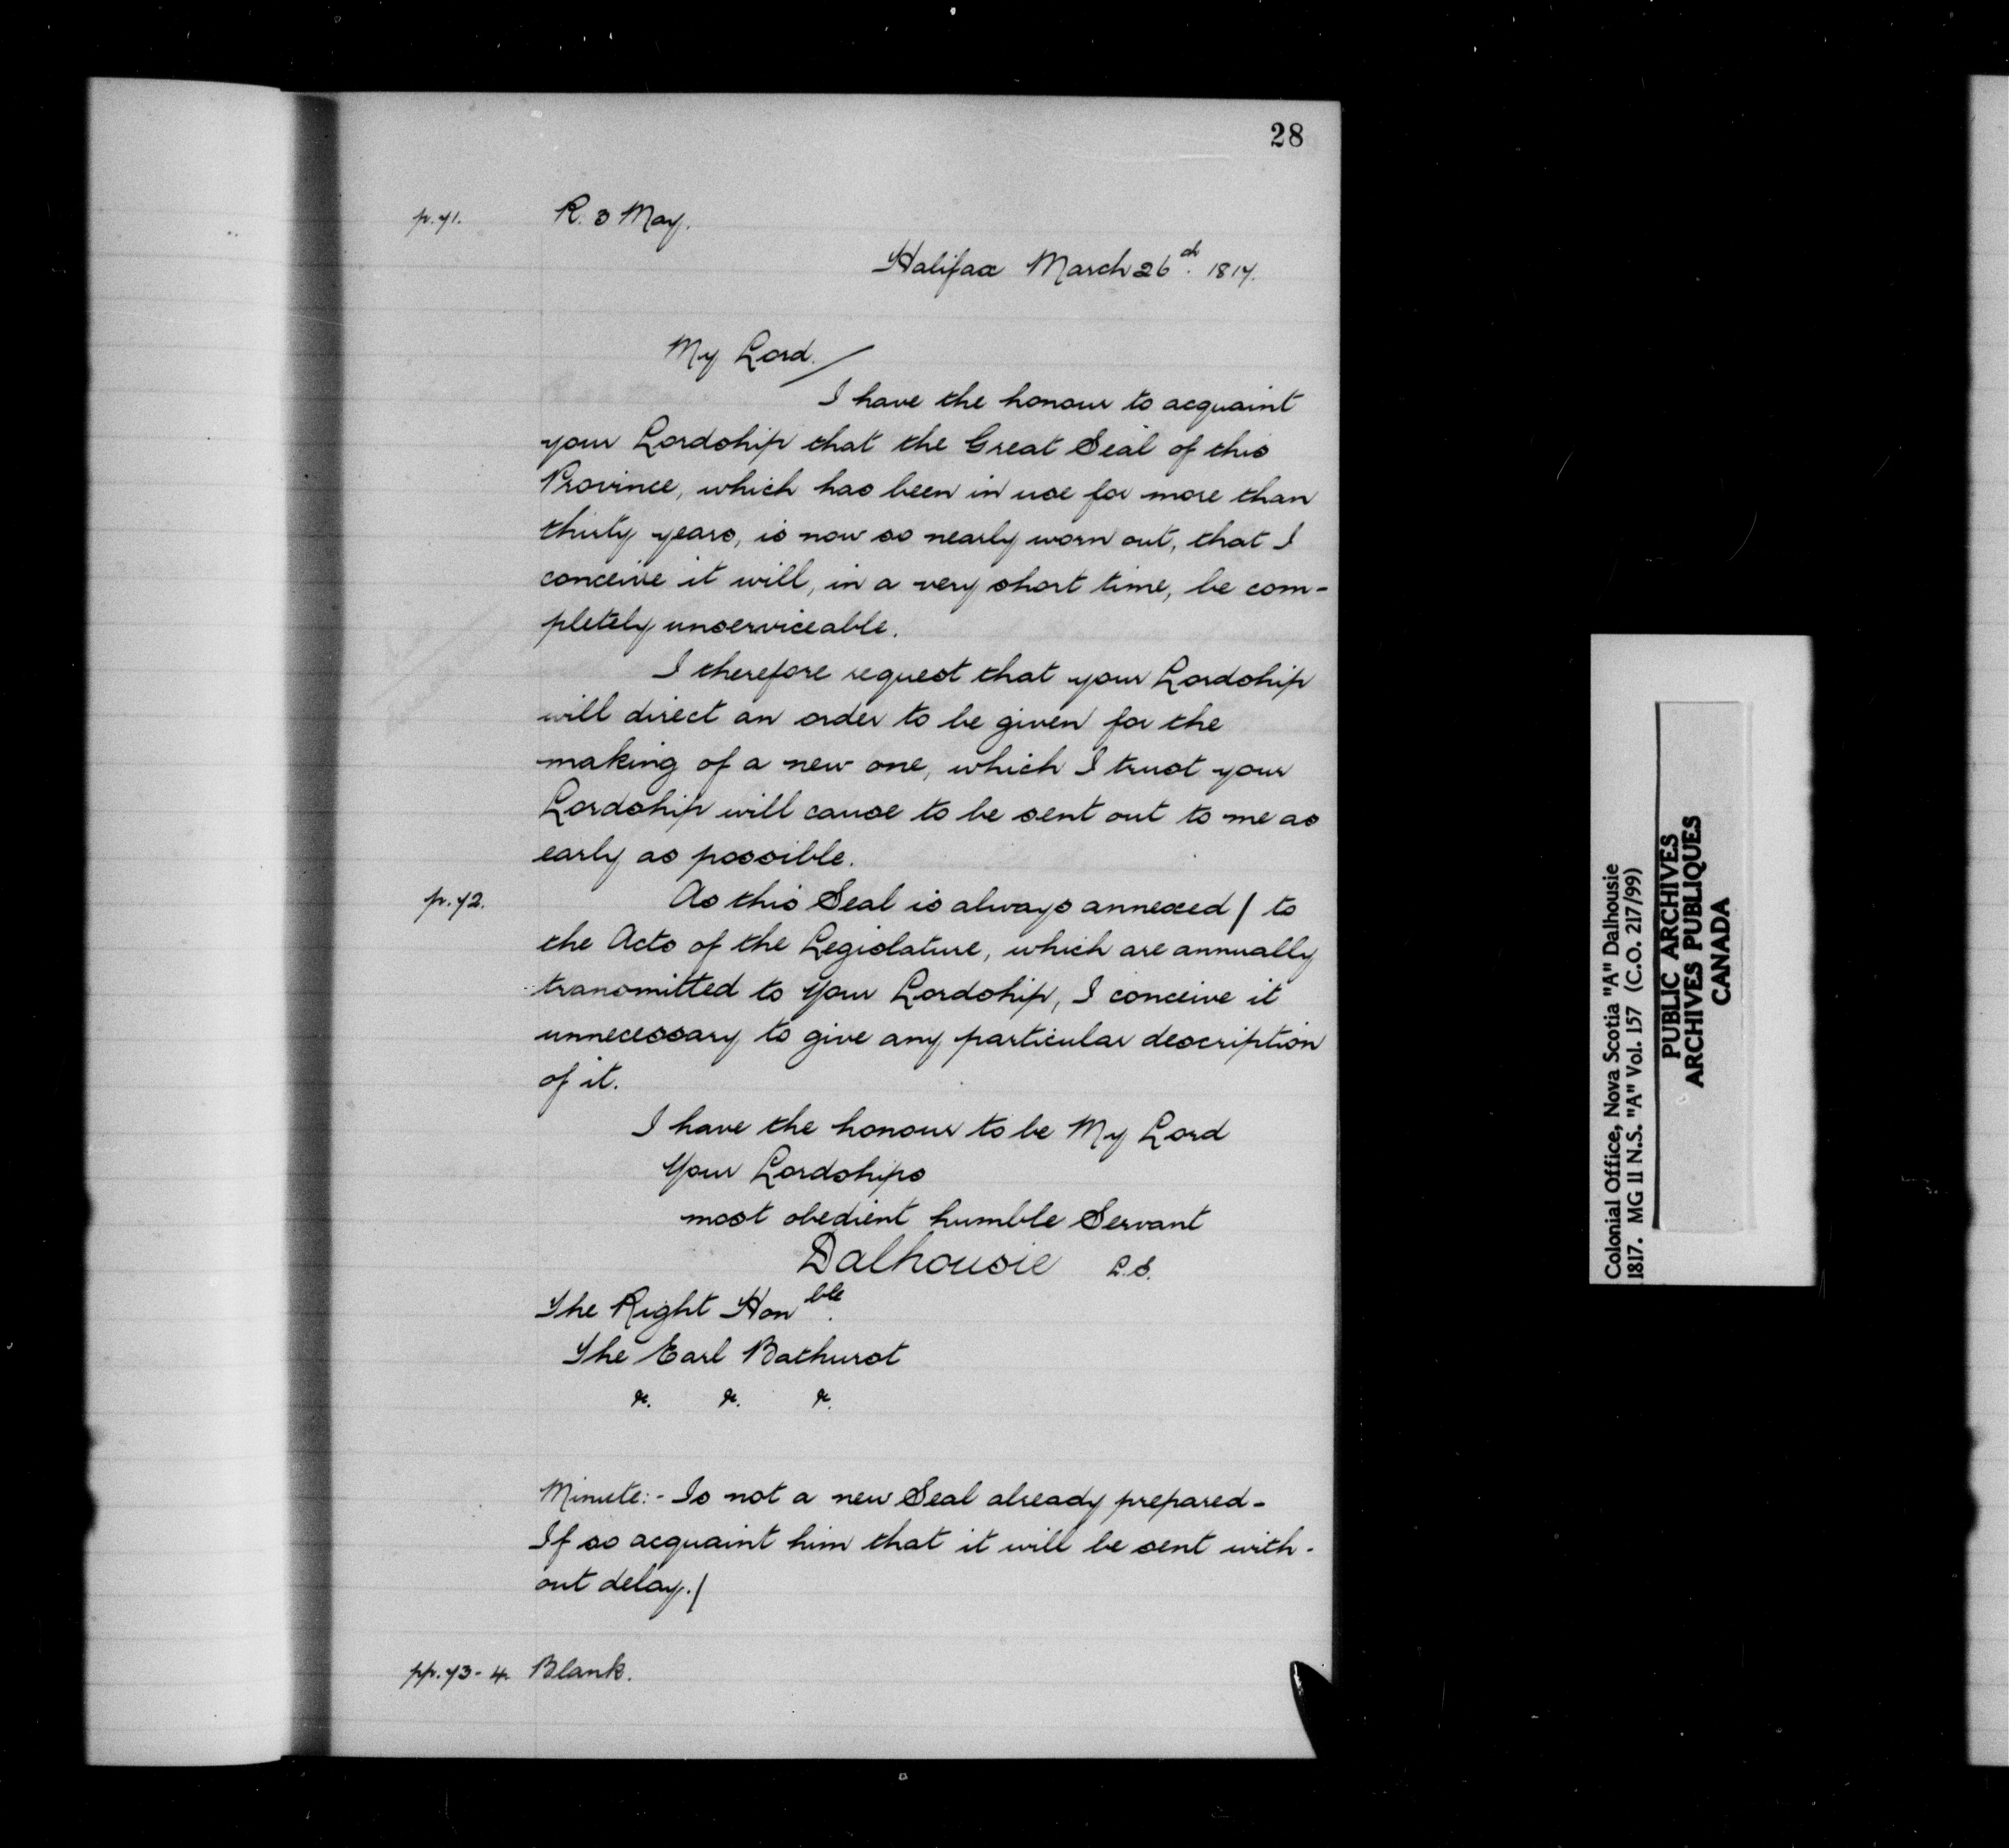 28
p. 71.
R. 3 May.
Halifax March 26th. 1817.
My Lord.
I have the honour to acquaint
your Lordship that the Great Seal of this
Province, which has been in use for more than
thirty years, is now so nearly worn out, that I
conceive it will, in a very short time, be com-
pletely unserviceable.
I therefore request that your Lordship
will direct an order to be given for the
making of a new one, which I trust your
Lordship will cause to be sent out to me as
early as possible.
p. 72.
As this Seal is always annexed / to
the Acts of the Legislature, which are annually
transmitted to Your Lordship, I conceive it
unnecessary to give any particular description
of it.
I have the honour to be My Lord
Your Lordships
most obedient humble Servant
Dalhousie L.S.
The Right Honble.
The Earl Bathurst
&. &. &.
Minute:- Is not a new Seal already prepared-
If so acquaint him that it will be sent with-
out delay./
pp. 73-4. Blank.
Colonial Office, Nova Scotia "A" Dalhousie
1817. MG 11 N.S. "A" Vol. 157 (C.O. 217/99)
PUBLIC ARCHIVES
ARCHIVES PUBLIQUES
CANADA